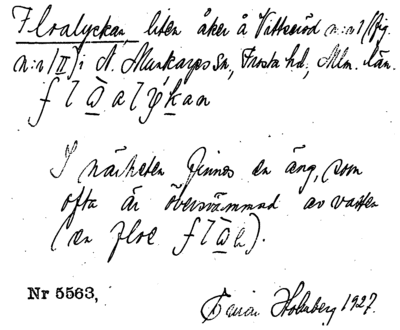 Floalyckan, liten åker å Vitteröd n:o 1 (fig.
n:o 1/II) i N. Munkarps sn, Frosta hd, Mlm. län.
f l ω̲ a l y k̲ a n
I närheten finnes en äng, som
ofta är översvämmad av vatten
(en floe f l ω̲ ).
Nr 5563,
Holmberg 1927.